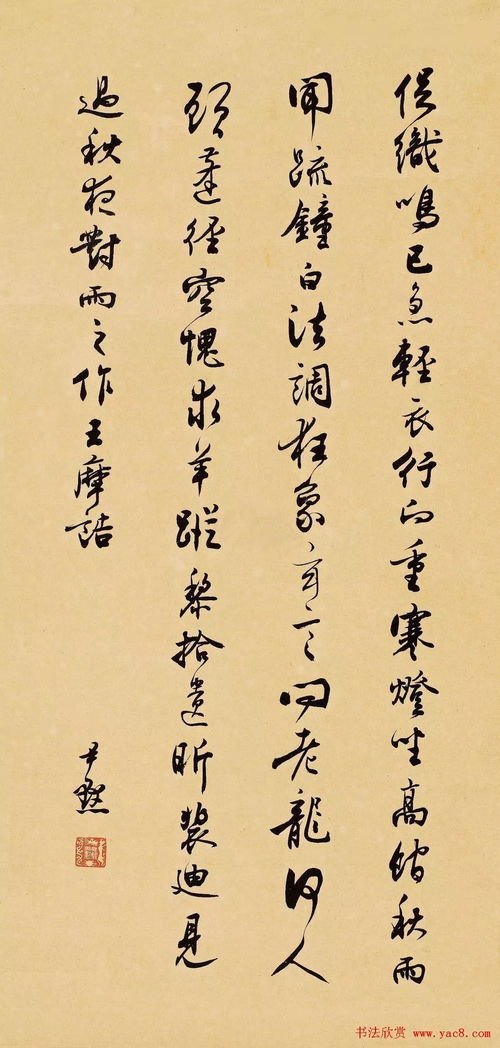 促織鳴已急輕衣行向重寒燈坐高舘秋雨
聞疏鐘白法調狂象玄言問老龍何人
顧蓬徑空愧求羊蹤黎拾遺昕裴迪見
過秋夜對雨之作王摩詰
尹默
书法欣赏 www.yac8.com